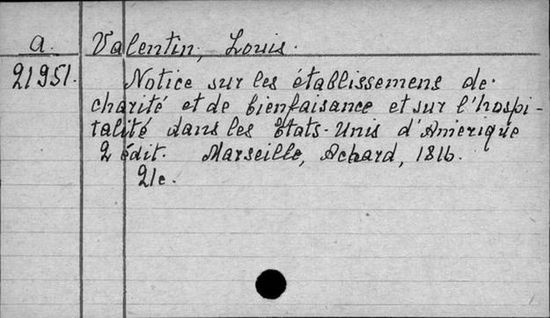 a. Valentin, Louis.
21951. Notice sur les établissemens de
charité et de bienfaisance et sur l'hospi-
talité dans les Etats-Unis d'Amerique
2 édit. Marseille, Achard, 1816.
21c.